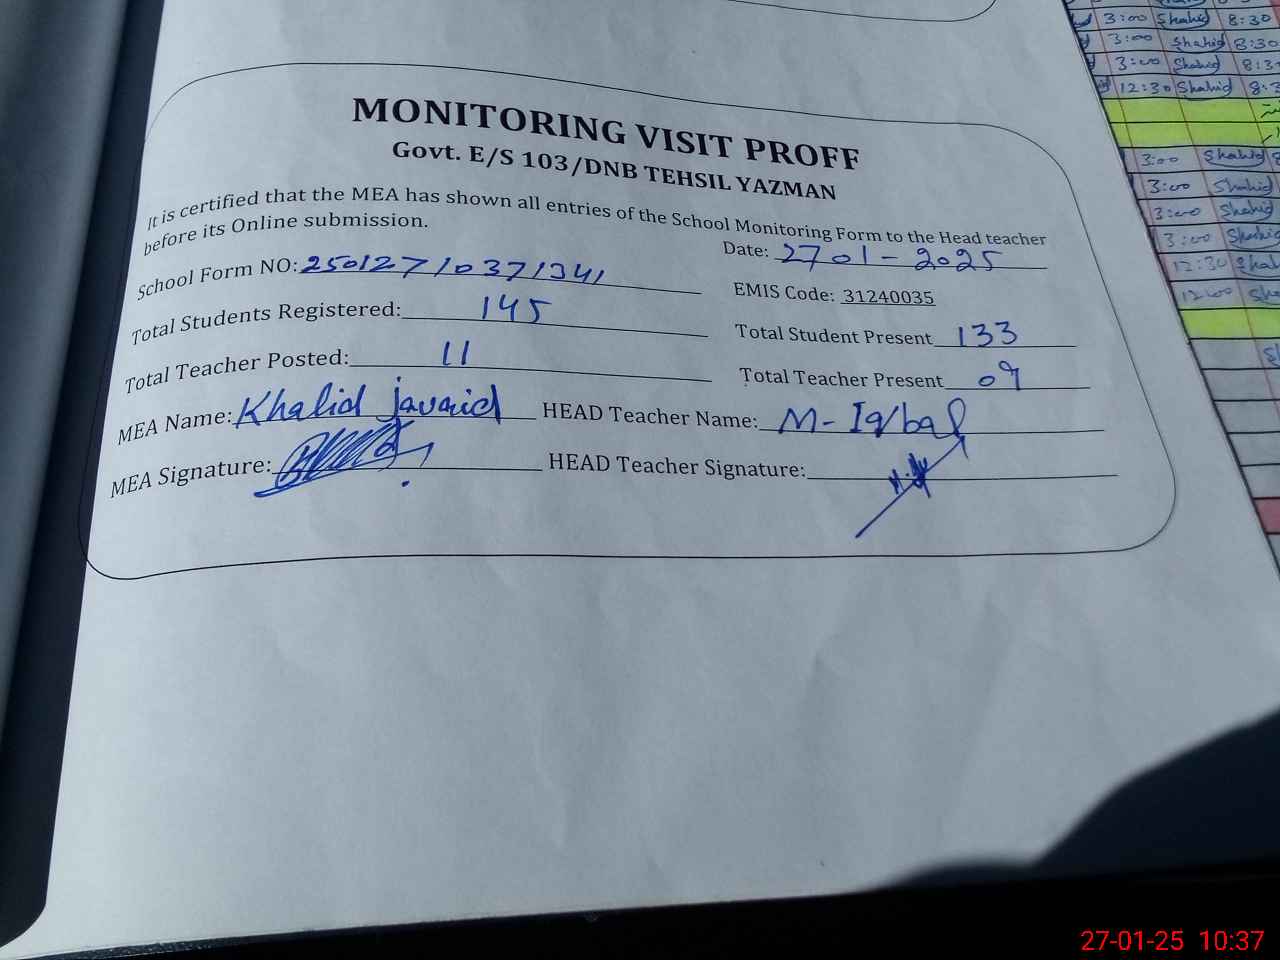 MONITORING VISIT PROFF
Govt. E/S 103/DNB TEHSIL YAZMAN
It is certified that the MEA has shown all entries of the School Monitoring Form to the Head teacher
before its Online submission.
Date: 27 01 - 2025
School Form NO: 25012710371341
EMIS Code: 31240035
Total Students Registered: 145
Total Student Present 133
Total Teacher Posted: 11
Total Teacher Present 09
MEA Name: Khalid javaid HEAD Teacher Name: M- Iqbal
MEA Signature: HEAD Teacher Signature:
3:00 Shahid 8:30
3:00 Shahid 8:30
3:00 Shahid 8:3
12:30 Shahid 8:3
3:00 Shahid 8
3:00 Shahid
3:00 Shahid
3:00 Shahid
12:30 Shah
12:00 Sha
27-01-25 10:37